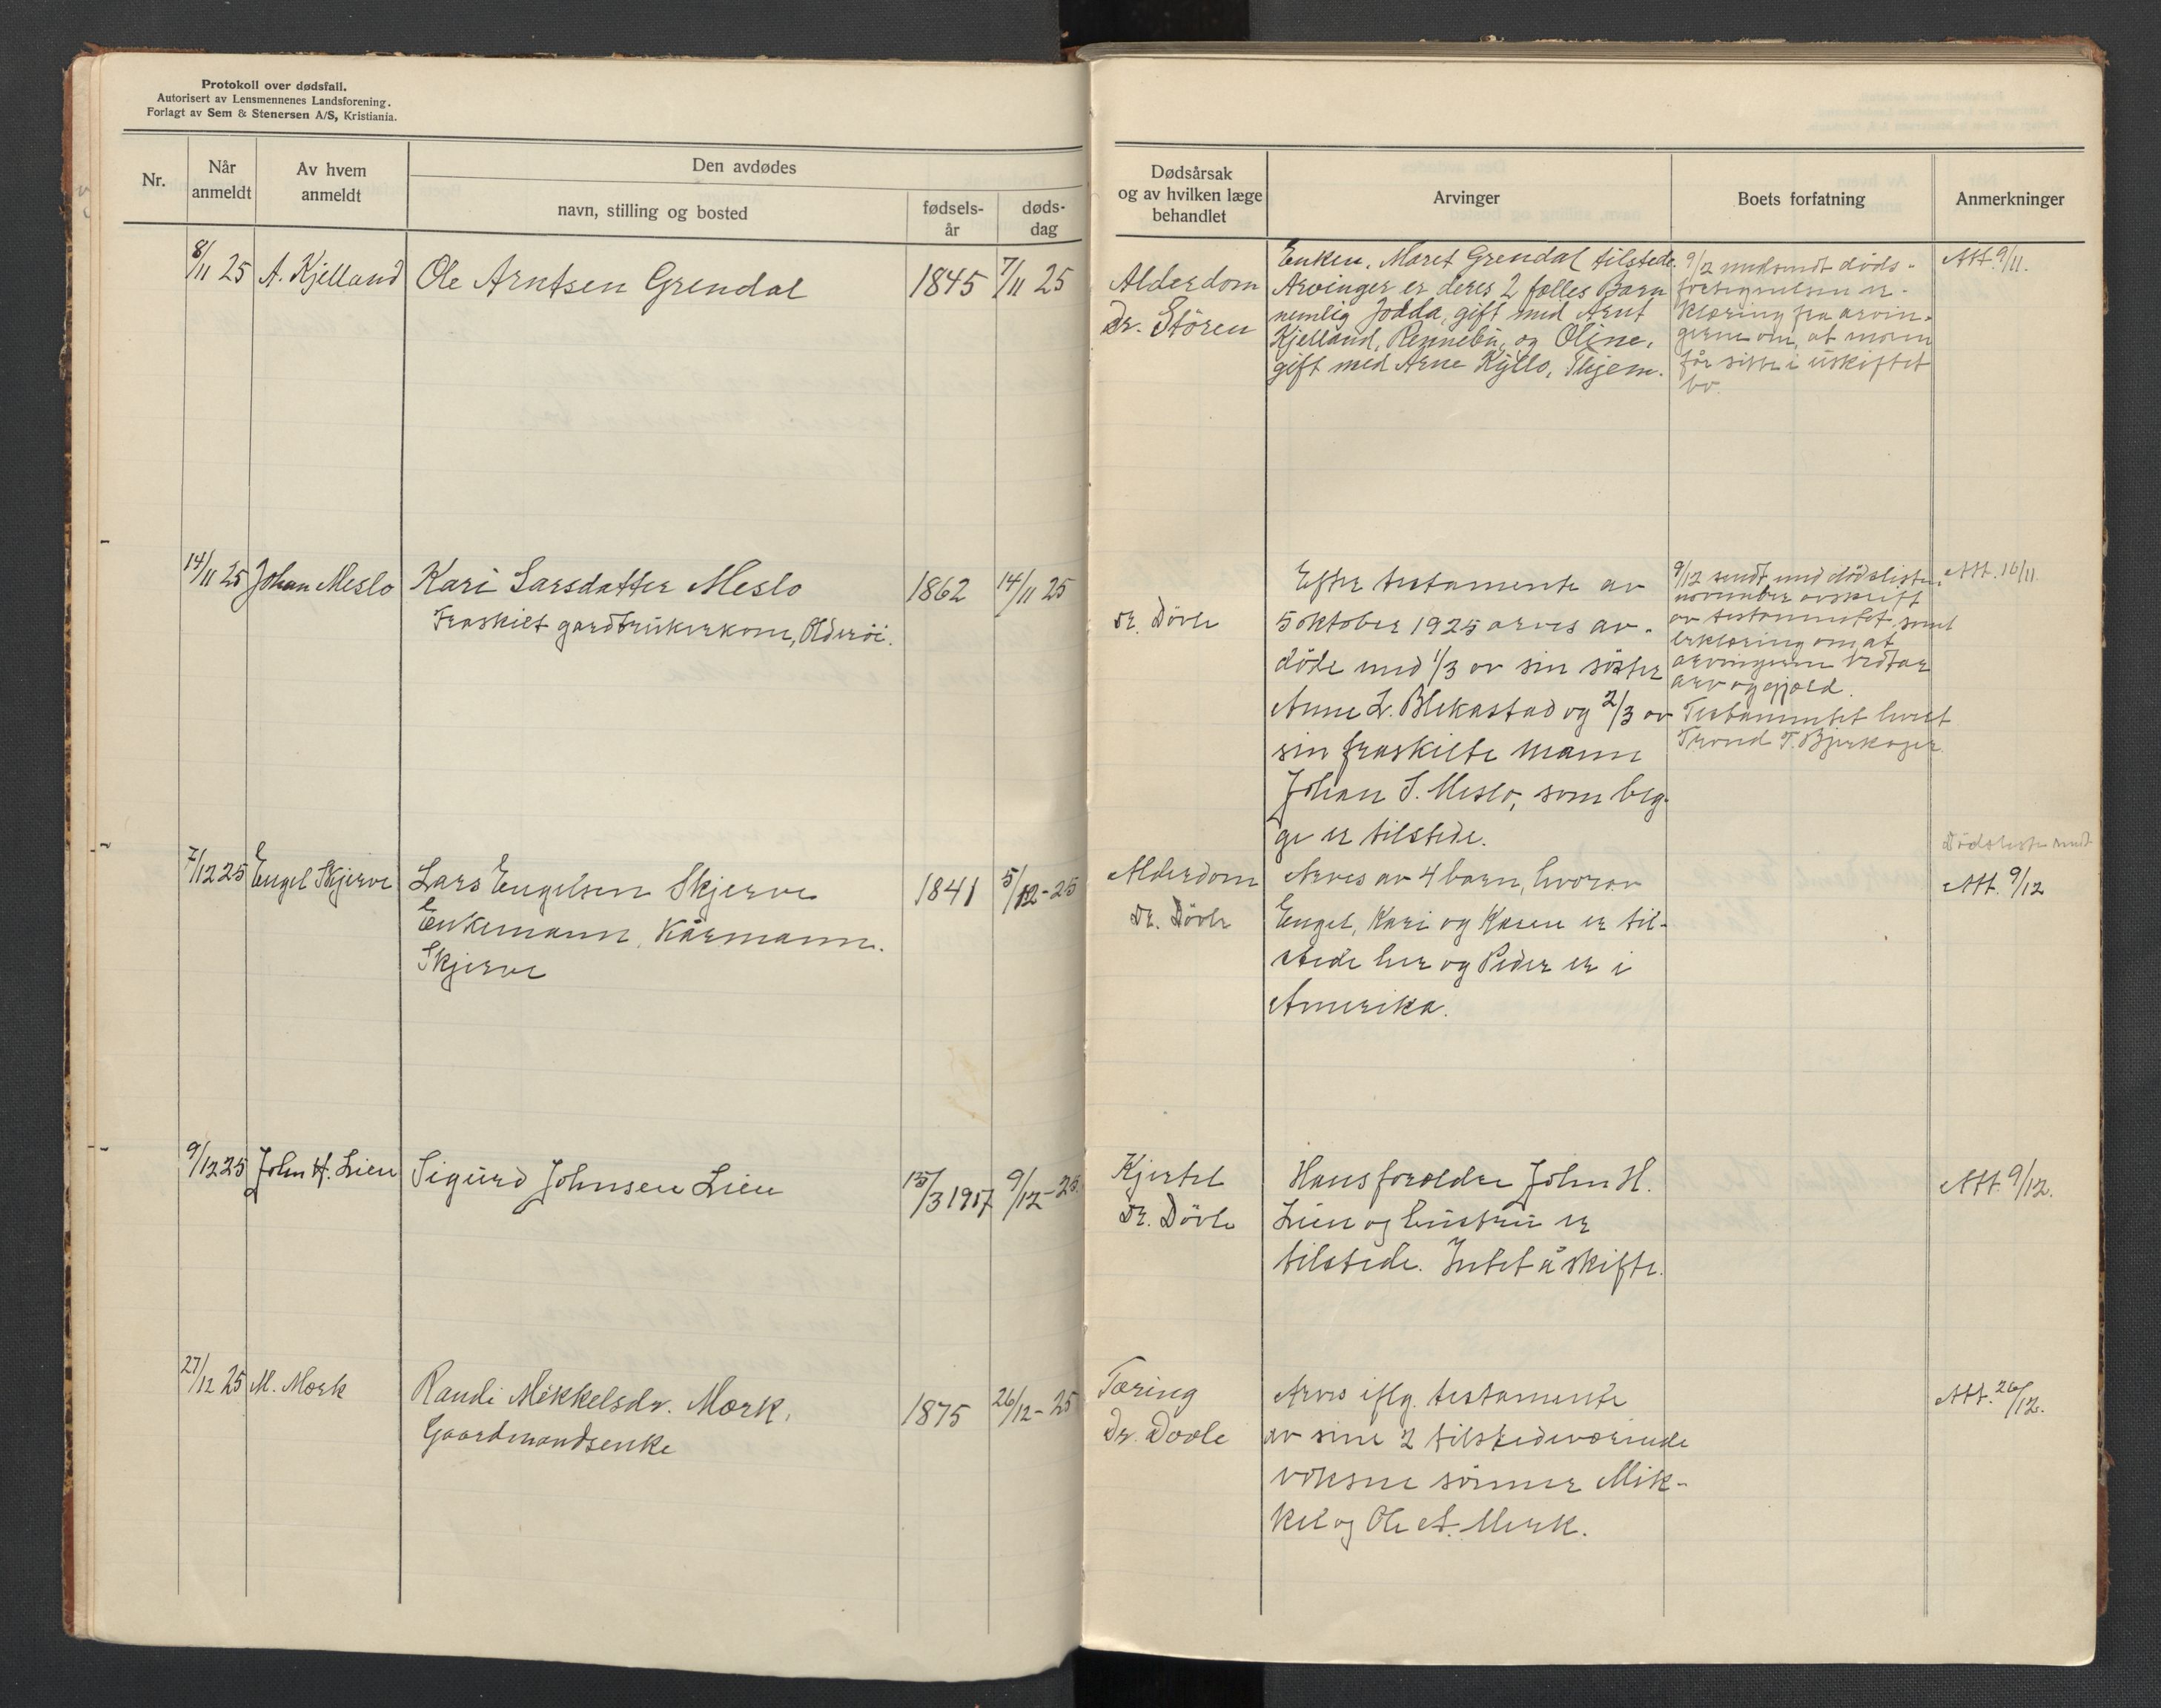 Protokoll over dødsfall.
Autorisert av Lensmennenes Landsforening.
Forlagt av Sem & Stenersen A/S, Kristiania.
Nr.
Når anmeldt
Av hvem anmeldt
Den avdødes
navn, stilling og bosted
fødsels-år
døds-dag
Dødsårsak og av hvilken læge behandlet
Arvinger
Boets forfatning
Anmerkninger
8/11 25
A. Kjelland
Ole Arntsen Grendal
1845
7/11 25
Alderdom
Dr. Stören
Enken, Maret Grendal tilstede.
Arvinger er deres 2 fælles Barn
nemlig Jodda, gift med Arnt
Kjelland, Rennebu, og Oline,
gift med Arne Kyllo,
9/2 innsendt døds-
fortegnelsen er-
klæring fra arvin-
gerne om, at moren
får sitte i uskiftet
bo.
Att. 9/11.
14/11 25
Johan Meslo
Kari Larsdatter Meslo
Fraskilt gardbrukerkone, Olderöi.
1862
14/11 25
Dr. Dövle
Efter testamente av
5 oktober 1925 arves av-
döde med 1/3 av sin söster
Anne L. Blekastad og 2/3 av
sin fraskilte mann
Johan S. Meslo, som beg-
ge er tilstede.
9/12 sendt med dödsliste
november avskrift
av testamentet samt
erklæring om at
arvingerne vedtar
arv og gjæld.
Testamentet
Trond T. Bjerkager.
Att. 16/11.
7/12 25
Engel Skjerve
Lars Engelsen Skjerve
Enkemann, Kårmann.
Skjerve
1841
5/12-25
Alderdom
Dr. Dövle
Arves av 4 barn, hvorav
Engel, Kari og Karen er til-
stede her og Peder er i
Amerika.
Dödsliste sendt
Att. 9/12
9/12 25
John H. Lien
Sigurd Johnsen Lien
15/3 1917
9/12-25.
Kjertel
Dr. Dövle
Hans forældre John H.
Lien og hustru er
tilstede. Intet å skifte.
Att. 9/12.
27/12 25
M. Mærk
Randi Mikkelsdr. Mærk,
Gaardmandsenke
1875
26/12-25
Tæring
Dr. Dovle
Arves iflg. testamente
av sine 2 tilstedeværende
voksne sönner Mik-
kel og Ole A. Merk.
Att. 26/12.